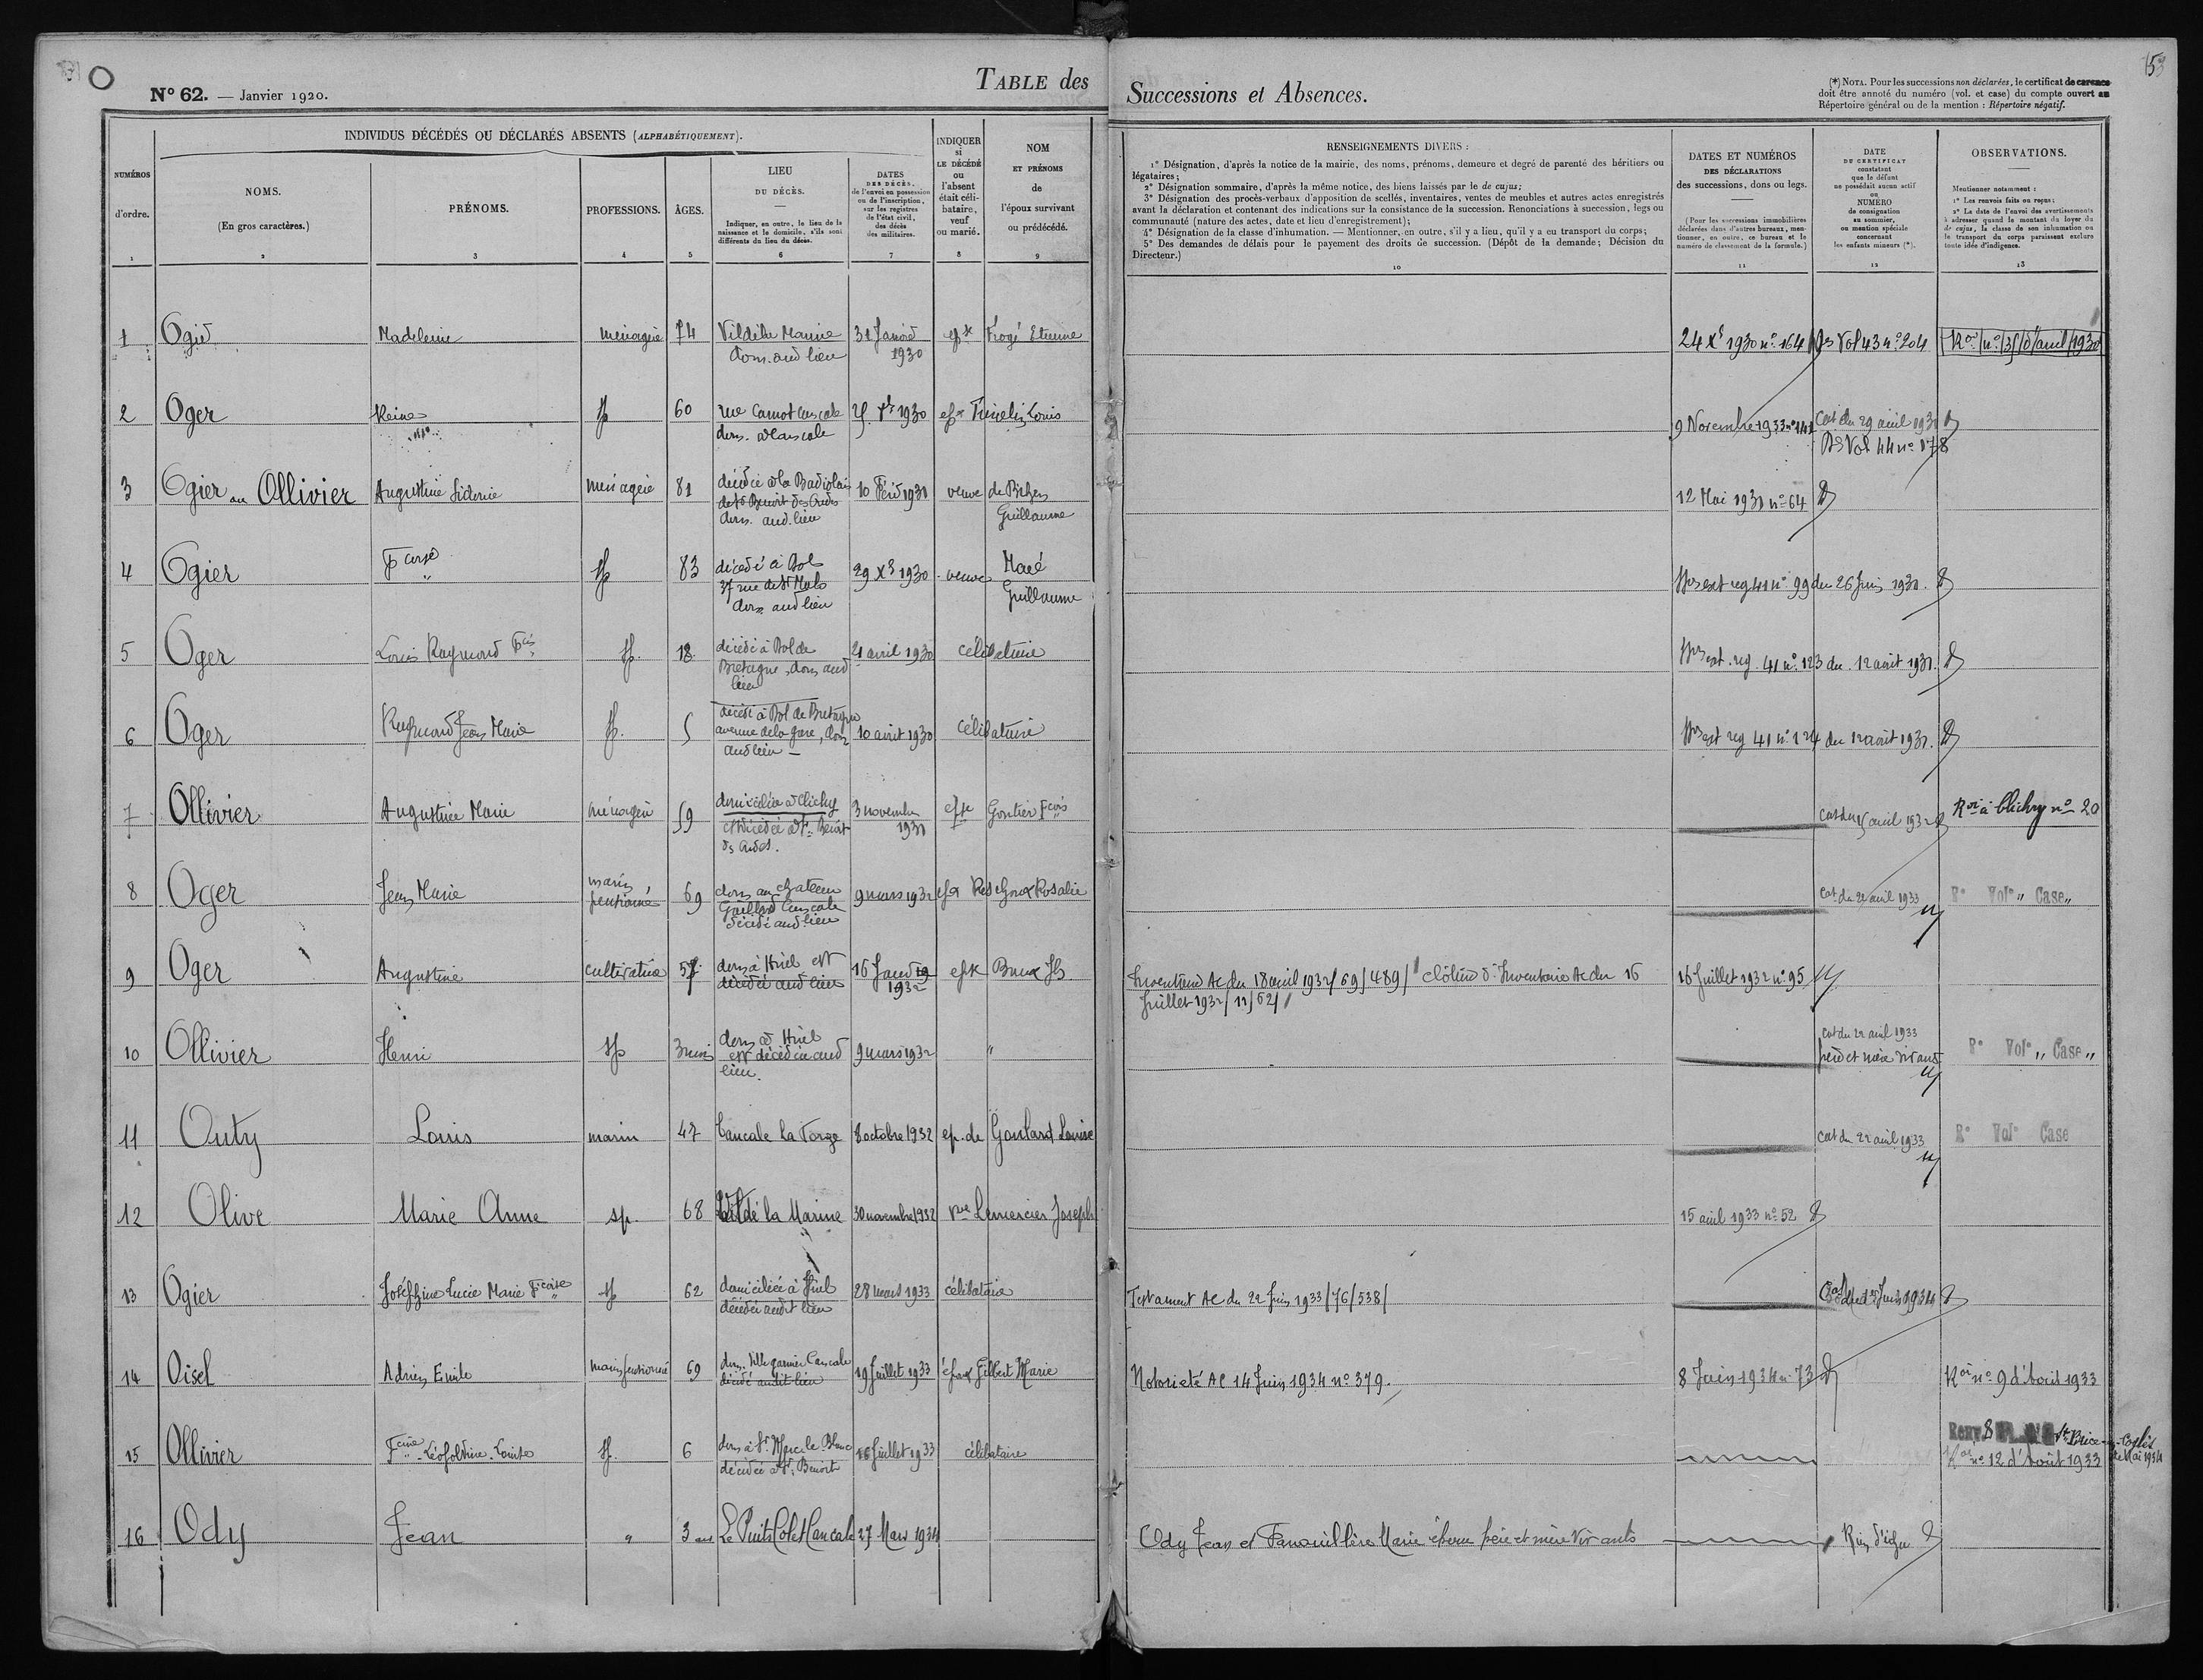 O
153
N° 62. — Janvier 1920.
TABLE des Successions et Absences.
(*) NOTA. Pour les successions non déclarées, le certificat de carence
doit être annoté du numéro (vol. et case) du compte ouvert au
Répertoire général ou de la mention : Répertoire négatif.
INDIVIDUS DÉCÉDÉS OU DÉCLARÉS ABSENTS (ALPHABÉTIQUEMENT).
NUMÉROS
d'ordre.
1
NOMS.
(En gros caractères.)
2
PRÉNOMS.
3
PROFESSIONS.
4
ÂGES.
5
LIEU
DU DÉCÈS.
Indiquer, en outre, le lieu de la
naissance et le domicile, s'ils sont
différents du lieu du décès.
6
DATES
DES DÉCÈS,
de l'envoi en possession
ou de l'inscription,
sur les registres
de l'état civil,
des décès
des militaires.
7
INDIQUER
si
LE DÉCÉDÉ
ou
l'absent
était céli-
bataire,
veuf
ou marié.
8
NOM
ET PRÉNOMS
de
l'époux survivant
ou prédécédé.
9
RENSEIGNEMENTS DIVERS :
1° Désignation, d'après la notice de la mairie, des noms, prénoms, demeure et degré de parenté des héritiers ou
légataires;
2° Désignation sommaire, d'après la même notice, des biens laissés par le de cujus;
3° Désignation des procès-verbaux d'apposition de scellés, inventaires, ventes de meubles et autres actes enregistrés
avant la déclaration et contenant des indications sur la consistance de la succession. Renonciations à succession, legs ou
communauté (nature des actes, date et lieu d'enregistrement);
4° Désignation de la classe d'inhumation. — Mentionner, en outre, s'il y a lieu, qu'il y a eu transport du corps;
5° Des demandes de délais pour le payement des droits de succession. (Dépôt de la demande; Décision du
Directeur.)
10
DATES ET NUMÉROS
DES DÉCLARATIONS
des successions, dons ou legs.
(Pour les successions immobilières
déclarées dans d'autres bureaux, men-
tionner, en outre, ce bureau et le
numéro de classement de la formule.)
11
DATE
DU CERTIFICAT
constatant
que le défunt
ne possédait aucun actif
ou
NUMÉRO
de consignation
au sommier,
ou mention spéciale
concernant
les enfants mineurs (*).
12
OBSERVATIONS.
Mentionner notamment :
1° Les renvois faits ou reçus;
2° La date de l'envoi des avertissements
à adresser quand le montant du loyer du
de cujus, la classe de son inhumation ou
le transport du corps paraissent exclure
toute idée d'indigence.
13
1 Madeleine ménagère 74 Etienne
1930
24 Xs 1930 n° 164 Vol 43 n° 204
2 Oger Reine sp 60 rue Carnot Cancale Louis
dom. à Cancale
9 Novembre 1933 n° 141 Cat du 29 avril 1931
Vol 44 n° 178
3 Ogier ou Ollivier Augustine Sidonie ménagère 81 veuve
dom. aud. lieu Guillaume
12 Mai 1931 n° 64
4 Ogier sp 83 décédé à Dol 29 Xs 1930 veuve
37 rue de St Malo Guillaume
dom aud lieu
reg 41 n° 99 du 26 Juin 1931
5 Oger Louis Raymond Fcis sp. 18 décédé à Dol de 21 avril 1930 célibataire
Bretagne, dom aud
lieu
reg. 41 n° 123 du 12 août 1931.
6 Oger Raymond Jean Marie sp. 5 décédé à Dol de Bretagne 10 avril 1930 célibataire
avenue de la gare, dom
aud lieu
reg 41 n° 124 du 12 août 1931.
7 Ollivier Augustine Marie ménagère 59 domiciliée à Clichy 3 novembre epse Gontier Fcois
est décédée à St Benoit 1931
des Ondes.
avril 1932 Roi à Clichy n° 20
8 Oger Jean Marie marin 69 dom au chateau 9 mars 1932 Rosalie
pensionné Gaillard Cancale
décédé aud. lieu
Cat du 22 avril 1933 R° Vol° " Case "
9 Oger Augustine cultivatrice 57 dom à Hirel est
décédée aud lieu 1932
Inventaire Ac du 18 avril 1932/69/489/ Clôture d'Inventaire Ac du 16
Juillet 1932/11/62/
16 Juillet 1932 n° 95
10 Ollivier Henri sp 3 mois dom à Hirel 9 mars 1932 "
est décédé aud
lieu.
cat du 22 avril 1933
père et mère vivants R° Vol° " Case "
11 Outy Louis marin 47 Cancale la Forge 8 octobre 1932 ep. de Goulard Louise
Cat du 22 avril 1933 R° Vol° Case
12 Olive Marie Anne sp. 68 Vildé la Marine 30 novembre 1932 vve Lemercier Joseph
15 avril 1933 n° 52
13 Ogier Joséphine Lucie Marie Fcoise sp 62 domiciliée à Hirel 28 mars 1933 célibataire
décédée audit lieu
Testament Ac du 22 Juin 1933/76/538/
Juin 1934
14 Oisel Adrien Emile marin pensionné 69 dom. Ville garnier Cancale 19 Juillet 1933 époux Gilbert Marie
décédé audit lieu
Notoriété AC 14 Juin 1934 n° 379.
8 Juin 1934 n° 73 Roi n° 9 d'Août 1933
15 Ollivier Léopoldine Louise sp. 6 dom à St Marc le Blanc 16 Juillet 1933 célibataire
décédée à St Benoit
Renv. 8 St Brice-en-Coglès
Roi n° 12 d'Août 1933 de Mai 1934
16 Ody Jean " 3 ans Le Puits Colet Cancale 27 Mars 1934
Ody Jean et Marie époux père et mère vivants